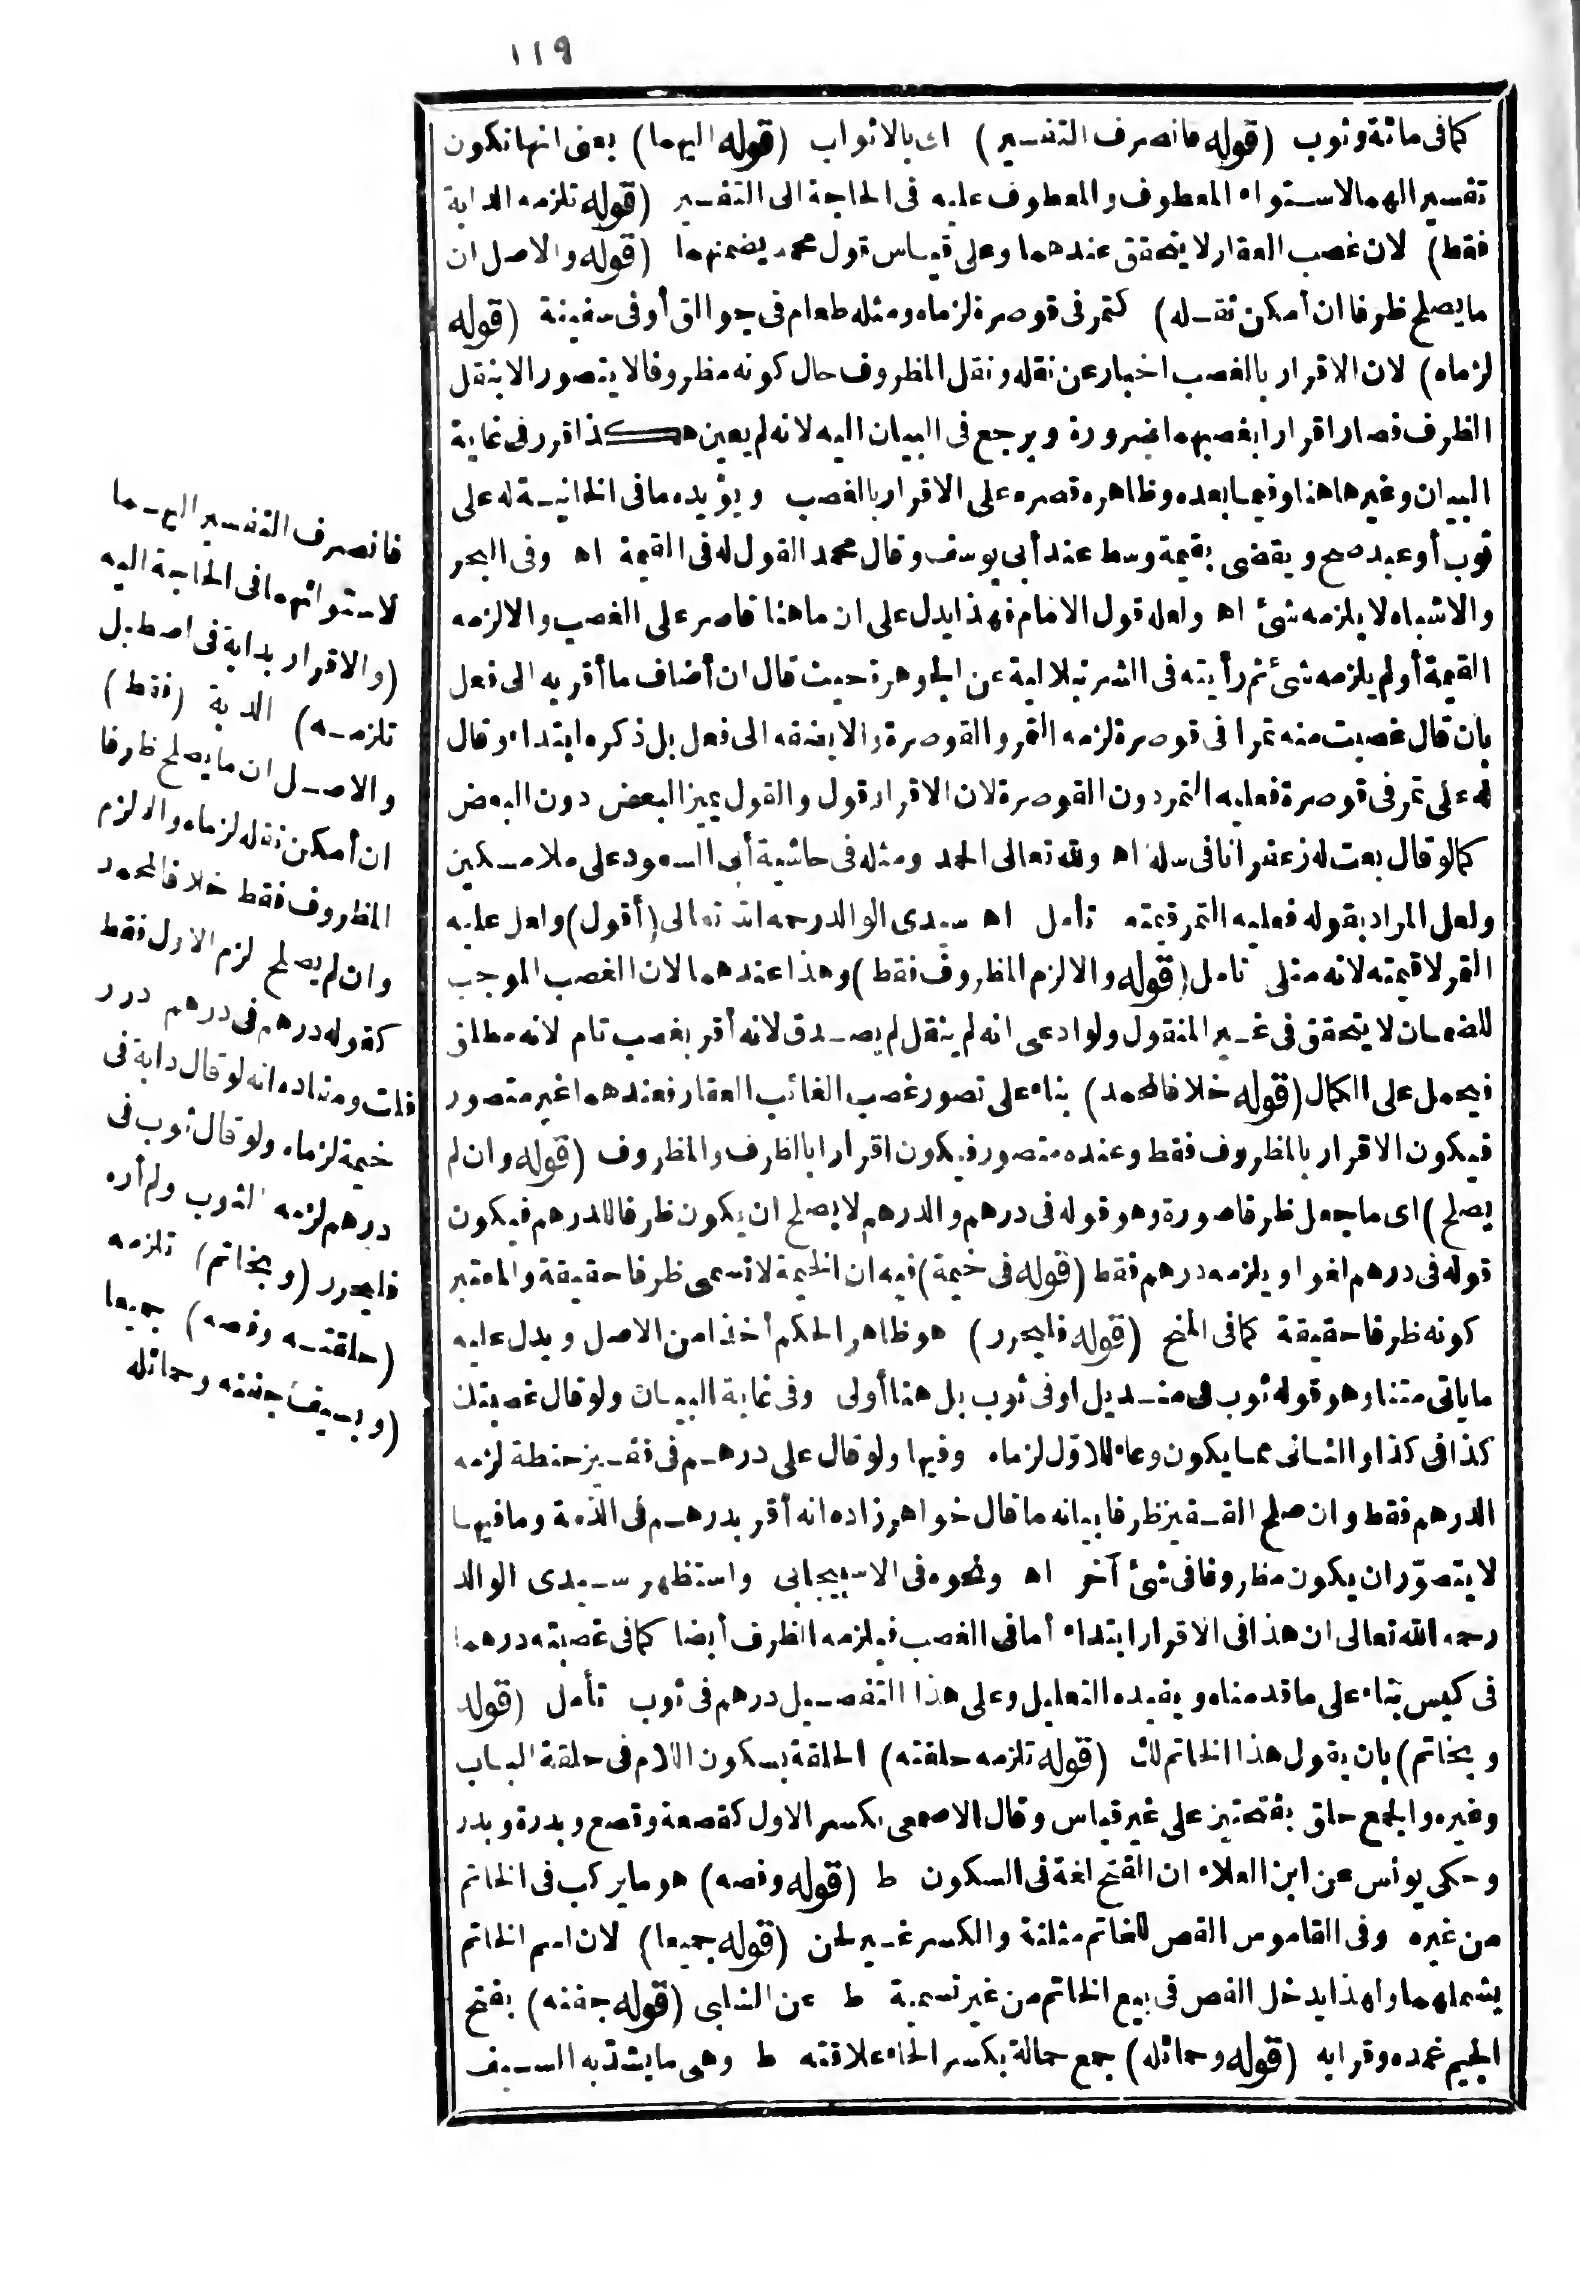 ١١٩
كما فى مائة وثوب (قوله فانصرف التفسير) اى بالاثواب (قوله اليهما) يعنى انها تكون
تفسير الهما لاستواء المعطوف والمعطوف عليه فى الحاجة الى التفسير (قوله تلزمه الدابة
فقط) لان غصب العقار لا يتحقق عندهما وعلى قياس قول محمد يضمنهما (قوله والاصل ان
ما يصلح ظرفا ان أمكن نقله) كتمر فى قوصرة لزماه ومثله طعام فى جوالق أو فى سفينة (قوله
لزماه) لان الاقرار بالغصب اخبار عن نقله ونقل المظروف حال كونه مظروفا لا يتصور الا بنقل
الظرف فصار اقرارا بغصبهما ضرورة ويرجع فى البيان اليه لانه لم يعين هكذا قرر فى غاية
البيان وغيرها هنا وفيما بعده وظاهره قصره على الاقرار بالغصب ويؤيده ما فى الخانية له على
ثوب أو عبد صح ويقضى بقيمة وسط عند أبى يوسف وقال محمد القول له فى القيمة اه وفى البحر
والاشباه لا يلزمه شئ اه ولعله قول الامام فهذا يدل على ان ما هنا قاصر على الغصب والا لزمه
القيمة أو لم يلزمه شئ ثم رأيته فى الشرنبلالية عن الجوهرة حيث قال ان أضاف ما أقر به الى فعل
بان قال غصبت منه تمرا فى قوصرة لزمه التمر والقوصرة والا يضفه الى فعل بل ذكره ابتداء وقال
له على تمر فى قوصرة فعليه التمر دون القوصرة لان الاقرار قول والقول يميز البعض دون البعض
كما لو قال بعت له زعفرانا فى سلة اه ولله تعالى الحمد ومثله فى حاشية أبى السعود على ملا مسكين
ولعل المراد بقوله فعليه التمر قيمته تأمل اه سيدى الوالد رحمه الله تعالى (أقول) ولعل عليه
التمر لا قيمته لانه مثلى تامل (قوله والا لزم المظروف فقط) وهذا عندهما لان الغصب الموجب
للضمان لا يتحقق فى غير المنقول ولو ادعى انه لم ينقل لم يصدق لانه أقر بغصب تام لانه مطلق
فيحمل على الكمال (قوله خلافا لمحمد) بناء على تصور غصب الغائب العقار فعندهما غير متصور
فيكون الاقرار بالمظروف فقط وعنده متصور فيكون اقرارا بالظرف والمظروف (قوله وان لم
يصلح) اى ما جعل ظرفا صورة وهو قوله فى درهم والدرهم لا يصلح ان يكون ظرفا للدرهم فيكون
قوله فى درهم لغوا ويلزمه درهم فقط (قوله فى خيمة) فيه ان الخيمة لا تسمى ظرفا حقيقة والمعتبر
كونه ظرفا حقيقة كما فى المنح (قوله فليحرر) هو ظاهر الحكم أخذا من الاصل ويدل عليه
ما ياتى متنا وهو قوله ثوب فى منديل او فى ثوب بل هنا أولى وفى غاية البيان ولو قال غصبتك
كذا فى كذا والثانى مما يكون وعاء للاول لزماه وفيها ولو قال على درهم فى قفيز حنطة لزمه
الدرهم فقط وان صلح القفيز ظرفا بيانه ما قال خواهر زاده انه أقر بدرهم فى الذمة وما فيها
لا يتصوّر ان يكون مظروفا فى شئ آخر اه ونحوه فى الاسبيجابى واستظهر سيدى الوالد
رحمه الله تعالى ان هذا فى الاقرار ابتداء أما فى الغصب فيلزمه الظرف أيضا كما فى غصبته درهما
فى كيس بناء على ما قدمناه ويفيده التعليل وعلى هذا التفصيل درهم فى ثوب تأمل (قوله
وبخاتم) بان يقول هذا الخاتم لك (قوله تلزمه حلقته) الحلقة بسكون اللام فى حلقة الباب
وغيره والجمع حلق بفتحتين على غير قياس وقال الاصمعى بكسر الاول كقصعة وقصع وبدرة وبدر
وحكى يونس عن ابن العلاء ان الفتح لغة فى السكون ط (قوله وفصه) هو ما يركب فى الخاتم
من غيره وفى القاموس الفص للخاتم مثلثة والكسر غير لحن (قوله جميعا) لان اسم الخاتم
يشملهما ولهذا يدخل الفص فى بيع الخاتم من غير تسمية ط عن الشلبى (قوله جفنه) بفتح
الجيم غمده وقرابه (قوله وحمائله) جمع حمالة بكسر الحاء علاقته ط وهى ما يشد به السيف
فانصرف التفسير اليهما
لاستوائهما فى الحاجة اليه
(والاقرار بدابة فى اصطبل
تلزمه) الدابة (فقط)
والاصل ان ما يصلح ظرفا
ان أمكن نقله لزماه والا لزم
المظروف فقط خلافا لمحمد
وان لم يصلح لزم الاول فقط
كقوله درهم فى درهم درر
قلت ومفاده انه لو قال دابة فى
خيمة لزماه ولو قال ثوب فى
درهم لزمه الثوب ولم أره
فليحرر (وبخاتم) تلزمه
(حلقته وفصه) جميعا
(وبسيف جفنه وحمائله